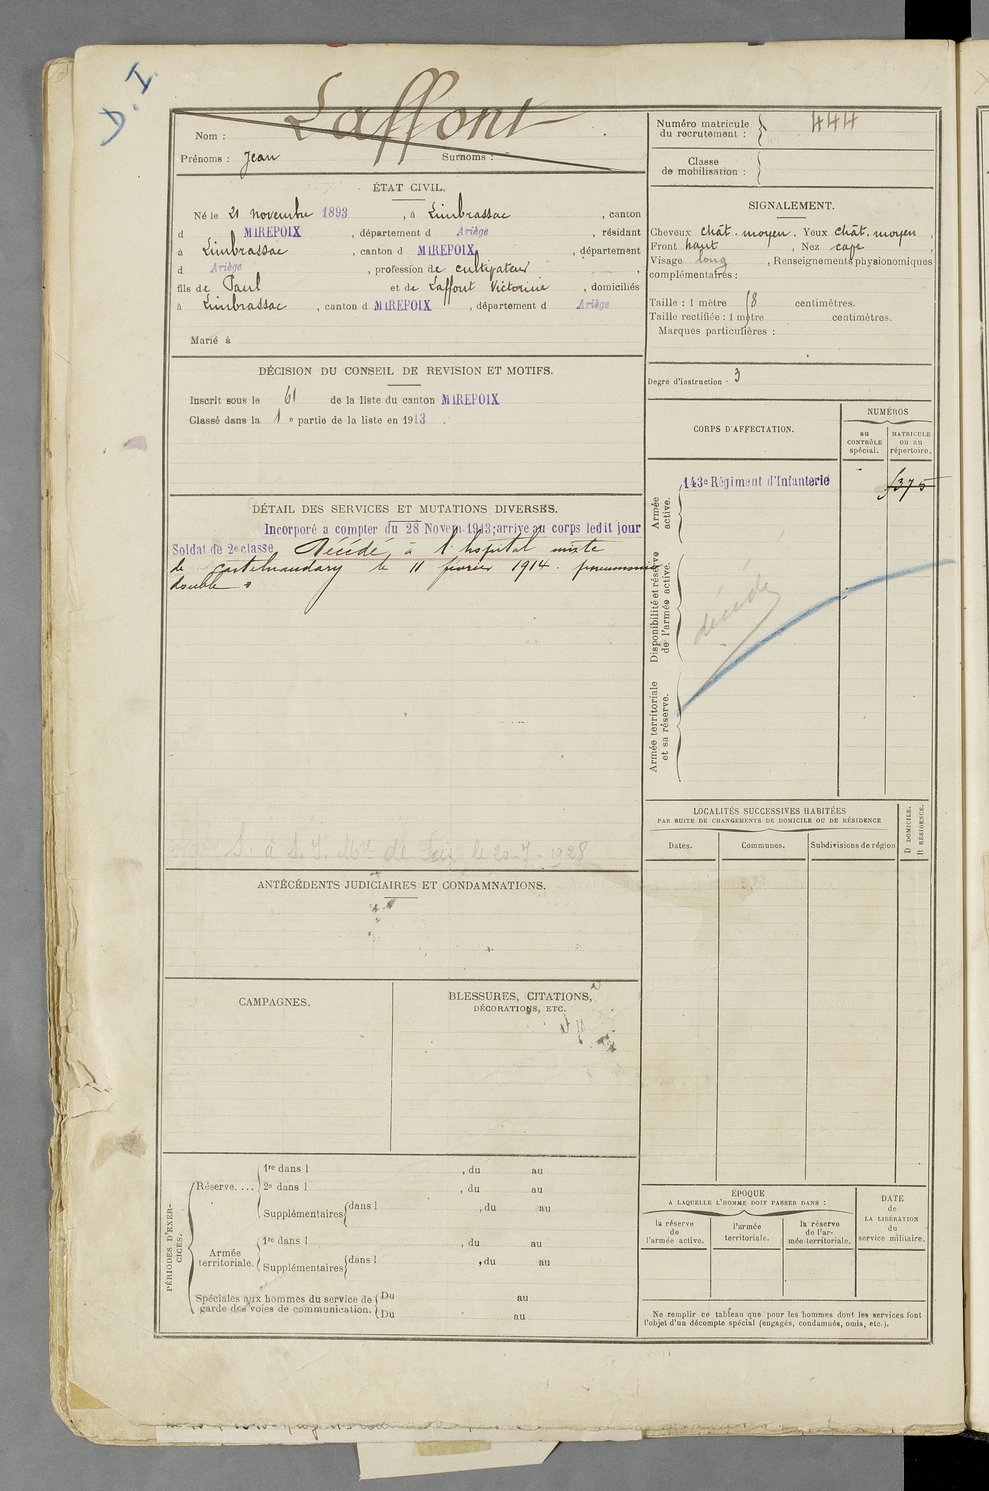 D. I.
Laffont
Nom :
Prénoms : Jean Surnoms :
ÉTAT CIVIL.
Né le 21 novembre 1893, à Limbrassac, canton
d MIREPOIX, département d Ariège, résidant
à Limbrassac, canton d MIREPOIX, département
d Ariège, profession de cultivateur
fils de Paul et de Laffont Victorine, domiciliés
à Limbrassac, canton d MIREPOIX, département d Ariège
Marié à
DÉCISION DU CONSEIL DE REVISION ET MOTIFS.
Inscrit sous le 61 de la liste du canton MIREPOIX
Classé dans la 1e partie de la liste en 1913.
DÉTAIL DES SERVICES ET MUTATIONS DIVERSES.
Incorporé a compter du 28 Novem. 1913; arrive au corps ledit jour
Soldat de 2e classe Décédé à l'hôpital mixte
de Castelnaudary le 11 février 1914. pneumonie
double
S. à S. de 20-7-1928
ANTÉCÉDENTS JUDICIAIRES ET CONDAMNATIONS.
CAMPAGNES.
BLESSURES, CITATIONS,
DÉCORATIONS, ETC.
PÉRIODES D'EXERCICES.
Réserve....
1re dans l , du au
2e dans l , du au
Supplémentaires dans l , du au
Armée territoriale.
1re dans l , du au
Supplémentaires dans l , du au
Spéciales aux hommes du service de Du au
garde des voies de communication. Du au
Numéro matricule
du recrutement : 444
Classe
de mobilisation :
SIGNALEMENT.
Cheveux chât. moyen, Yeux chât. moyen,
Front haut, Nez
Visage long, Renseignements physionomiques
complémentaires :
Taille : 1 mètre 68 centimètres.
Taille rectifiée : 1 mètre centimètres.
Marques particulières :
Degré d'instruction . 3
CORPS D'AFFECTATION.
NUMÉROS
au
CONTRÔLE
spécial.
MATRICULE
ou au
répertoire.
Armée
active.
143e Régiment d'Infanterie
Disponibilité et réserve
de l'armée active.
décédé
Armée territoriale
et sa réserve.
LOCALITÉS SUCCESSIVES HABITÉES
PAR SUITE DE CHANGEMENTS DE DOMICILE OU DE RÉSIDENCE
Dates. Communes. Subdivisions de région
D DOMICILE.
R RÉSIDENCE.
ÉPOQUE
A LAQUELLE L'HOMME DOIT PASSER DANS :
la réserve
de
l'armée active.
l'armée
territoriale.
la réserve
de l'ar-
mée territoriale.
DATE
de
LA LIBÉRATION
du
service militaire.
Ne remplir ce tableau que pour les hommes dont les services font
l'objet d'un décompte spécial (engagés, condamnés, omis, etc.).